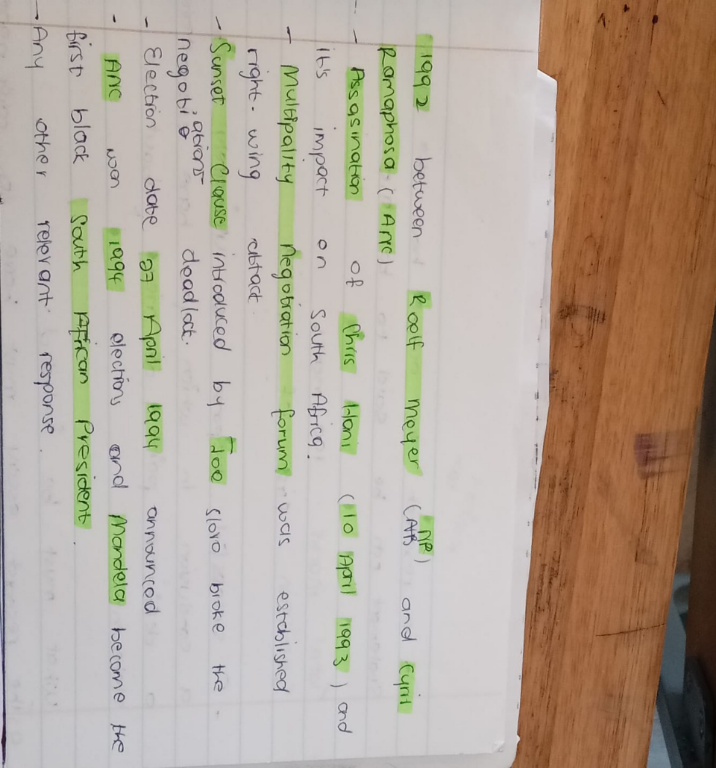 1992 between Roelf Meyer (NP) and Cyril
Ramaphosa (ANC)
- Assasination of Chris Hani (10 April 1993) and
it's impact on South Africa.
- Multipality Negotiation forum was established
right-wing attack
- Sunset Clause introduced by Joe Slovo broke the
negotiations deadlock.
- Election date 27 April 1994 announced
- ANC won 1994 elections and Mandela become the
first black South African President.
- Any other relevant response.